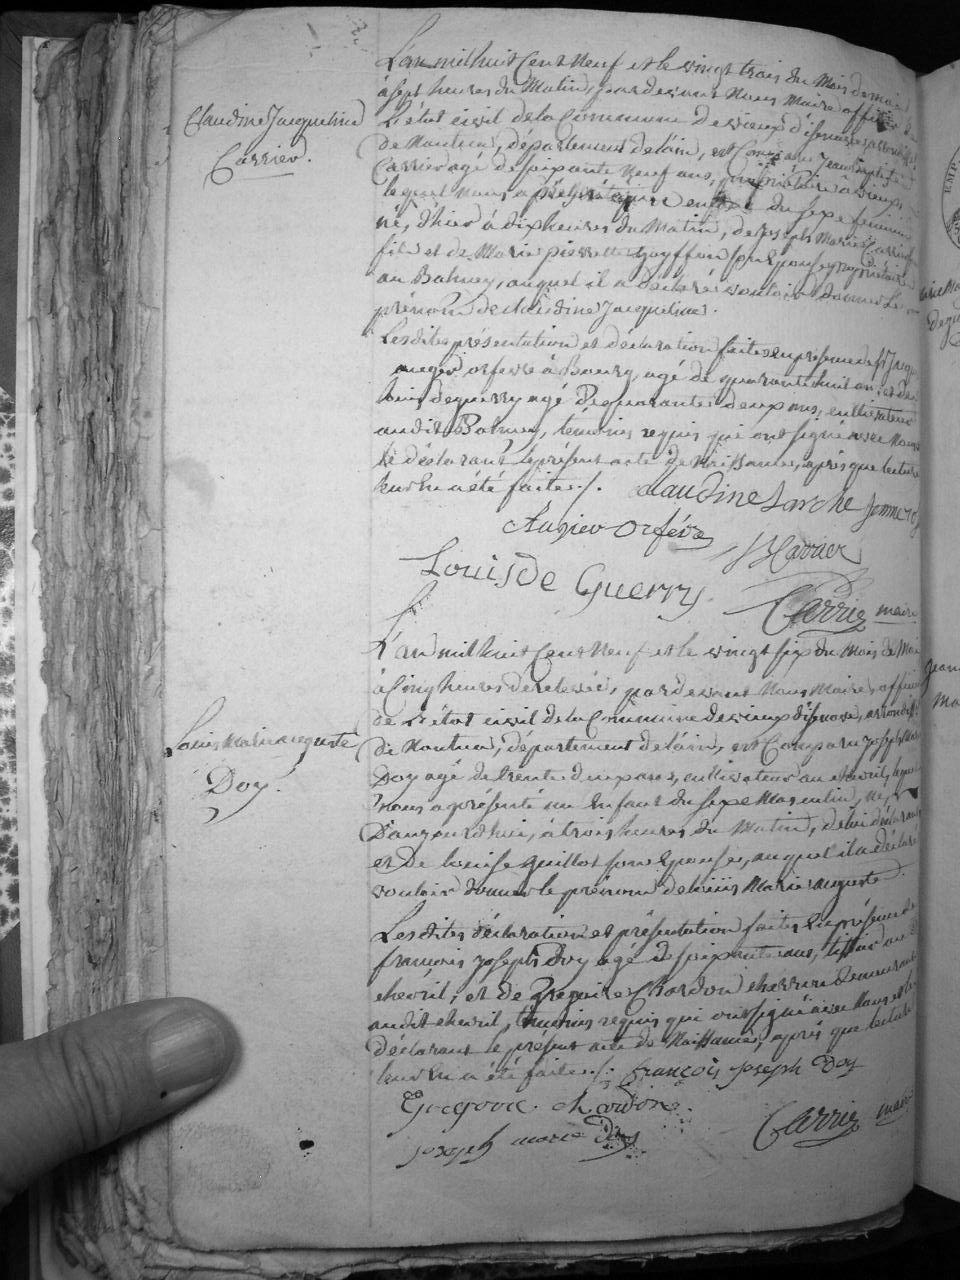 L'an mil huit Cent Neuf et le vingt trois du Mois de mai
à sept heures du Matin, par devant Nous Maire officier de
L'état civil de la Commune de vieux d'isenave, arrondisst
de Nantua, département de l'ain, est Comparu Jean
Carrier agé de soixante neuf ans, propriétaire à vieux
lequel nous a présenté un enfant du sexe feminin
né, d'hier à dix heures du Matin, de joseph Marie Carrier
fils et de Marie pierrette Goyffon son Epouse, propriétaire
au Balmey, auquel il a déclaré vouloir donner le
prénom de claudine Jacqueline.
Claudine Jacqueline
Carrier.
Lesdites présentation et déclaration faites en présence de
augier orfevre à Bourg, agé de quarante huit ans, et de
louis deguerry agé de quarante deux ans, cultivateur
audit Balmey, témoins requis qui ont signé avec Nous
le déclarant le présent acte de Naissance, après que lecture
leur En a été faite ./.
Claudine Larche femme
Augier Orfévre
JB Carrier
Louis de Guerry
Carrier maire
L'an mil huit Cent Neuf et le vingt six du Mois de Mai
à Cinq heures de relevée, par devant Nous Maire, officier
de L'état civil de la Commune de vieux d'isenave, arrondisst
de Nantua, département de l'ain, est Comparu joseph Marie
Doy agé de trente deux ans, cultivateur au chevril, lequel
nous a présenté un Enfant du sexe Masculin, né,
D'aujourd'hui, à trois heures du Matin, de lui déclarant
et de louise guillot son Epouse, auquel il a déclaré
vouloir donner le prénom de louis Marie auguste.
Louis Marie auguste
Doy.
Lesdites déclaration et présentation faites En présence de
françois joseph Doy agé de soixante ans, tissier au
chevril, et de Gregoire Chardon charron demeurant
audit chevril, témoins requis qui ont signé avec Nous et le
déclarant le présent acte de Naissance, après que lecture
leur En a été faite ./. françois joseph Doy
Gregoire chardon
joseph marie Doy
Carrier maire